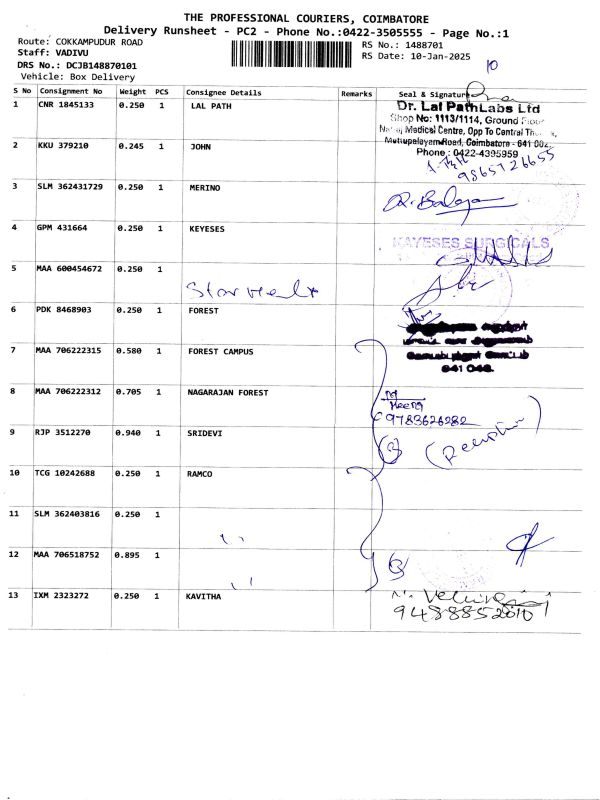 THE PROFESSIONAL COURIERS, COIMBATORE
Delivery Runsheet - PC2 - Phone No.:0422-3505555 - Page No.:1
Route: COKKAMPUDUR ROAD RS No.: 1488701
Staff: VADIVU RS Date: 10-Jan-2025
DRS No.: DCJB148870101 10
Vehicle: Box Delivery
S No Consignment No Weight PCS Consignee Details Remarks Seal & Signature
1 CNR 1845133 0.250 1 LAL PATH
Dr. Lal PathLabs Ltd
Shop No: 1113/1114, Ground Floor
Medical Centre, Opp To Central
Mettupalayam Road, Coimbatore - 641 002
Phone : 0422-4395959
2 KKU 379210 0.245 1 JOHN
9865726655
3 SLM 362431729 0.250 1 MERINO
R. Balaja
4 GPM 431664 0.250 1 KEYESES
KAYESES SURGICALS
5 MAA 600454672 0.250 1
Star Helt
6 PDK 8468903 0.250 1 FOREST
641 043.
7 MAA 706222315 0.580 1 FOREST CAMPUS
8 MAA 706222312 0.705 1 NAGARAJAN FOREST
9783626282
9 RJP 3512270 0.940 1 SRIDEVI
(Reception)
10 TCG 10242688 0.250 1 RAMCO
11 SLM 362403816 0.250 1
12 MAA 706518752 0.895 1
13 IXM 2323272 0.250 1 KAVITHA
9488852610